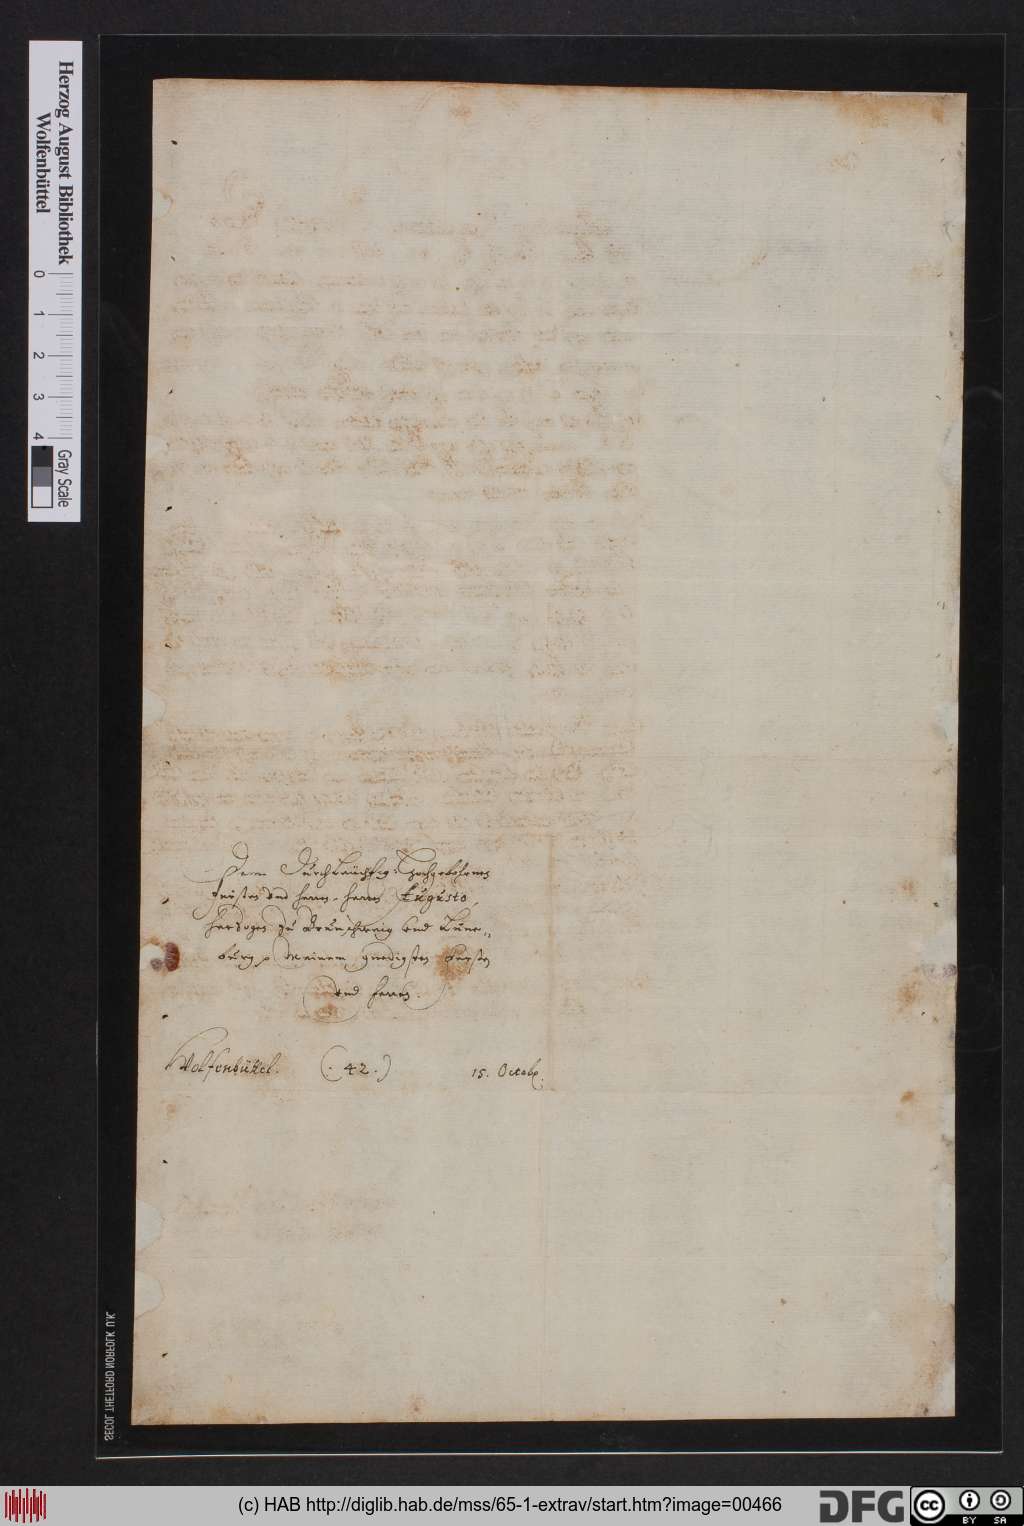 Dem Durchleuchtig: Hochgebohrnen
Fursten und Herrn, Herrn Augusto,
Hertzogen zu Brunschweig und Lune-
burg Meinem gnedigsten Fursten
und Herrn.
Wolfenbüttel. (. 42 .) 15. Octobr.
Herzog August Bibliothek
Wolfenbüttel
0 1 2 3 4
Gray Scale
(c) HAB http://diglib.hab.de/mss/65-1-extrav/start.htm?image=00466
DFG
cc BY SA